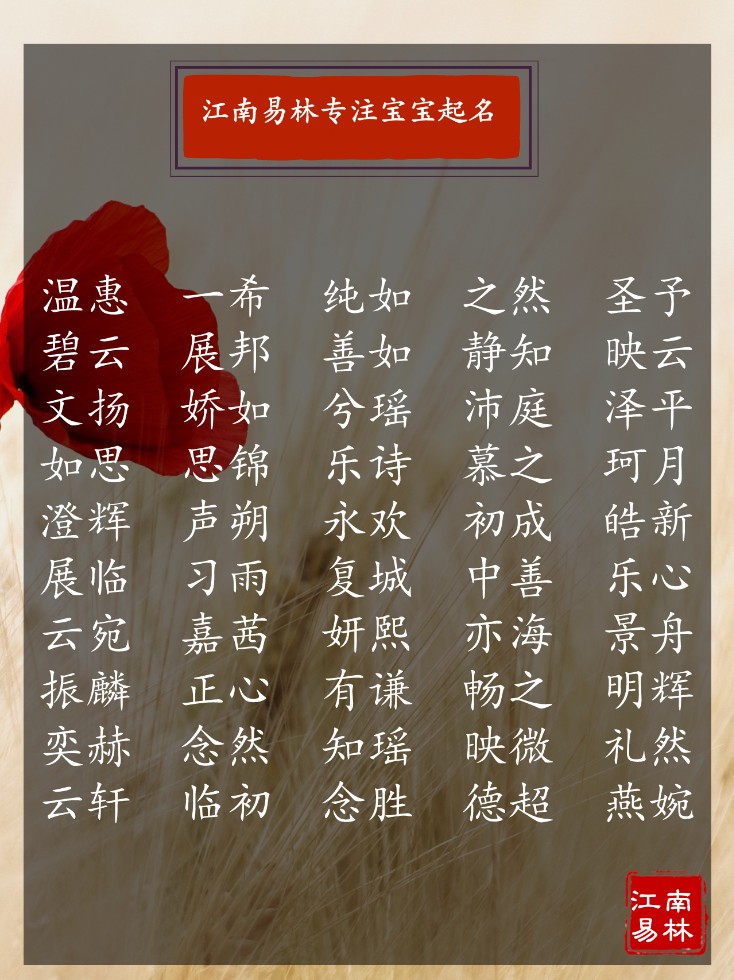 江南易林专注宝宝起名
温惠 一希 纯如 之然 圣予
碧云 展邦 善如 静知 映云
文扬 娇如 兮瑶 沛庭 泽平
如思 思锦 乐诗 慕之 珂月
澄辉 声朔 永欢 初成 皓新
展临 习雨 复城 中善 乐心
云宛 嘉茜 妍熙 亦海 景舟
振麟 正心 有谦 畅之 明辉
奕赫 念然 知瑶 映微 礼然
云轩 临初 念胜 德超 燕婉
江南
易林